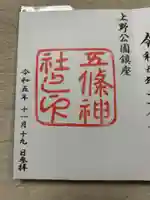 上野公園鎮座
五條神
社之印
令和五年十一月十九日参拝